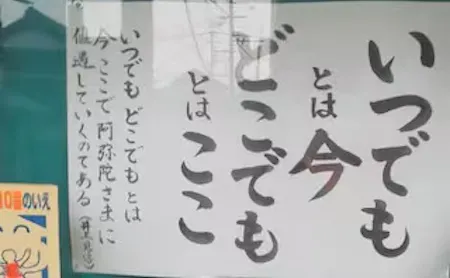 いつでも
とは今
どこでも
とはここ
いつでもどこでもとは
今ここで阿弥陀さまに
値遇していくのである
10番のいえ